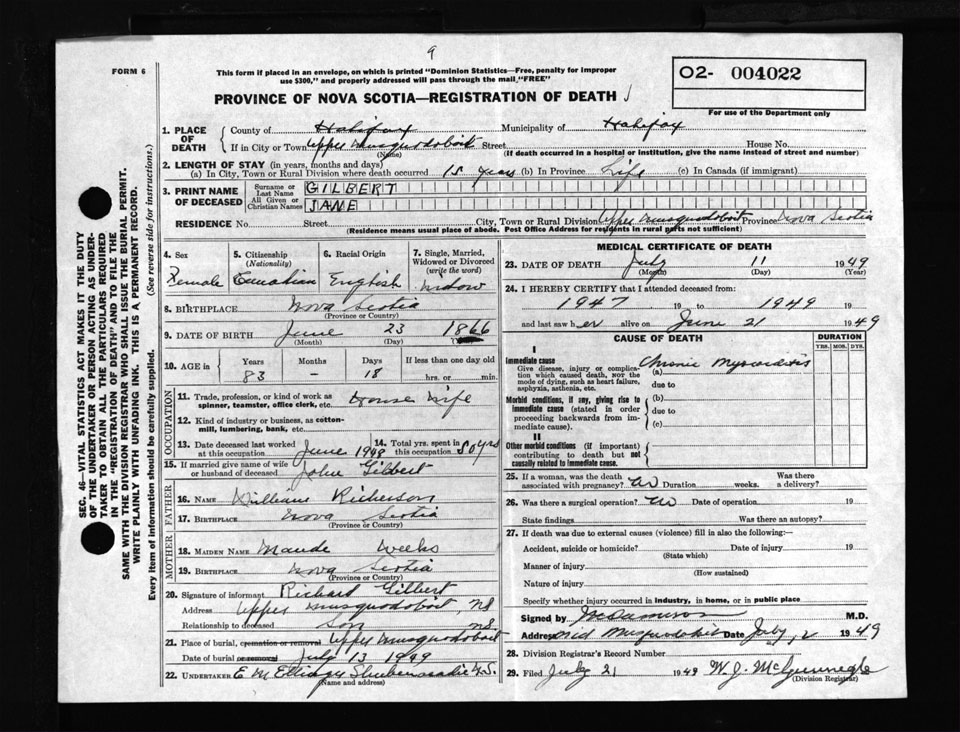 9
FORM 6
This form if placed in an envelope, on which is printed "Dominion Statistics—Free, penalty for improper
use $300," and properly addressed will pass through the mail "FREE"
PROVINCE OF NOVA SCOTIA—REGISTRATION OF DEATH
O2- 004022
For use of the Department only
1. PLACE OF DEATH
County of Halifax Municipality of Halifax
If in City or Town Upper Musquodoboit Street House No.
(Name) (If death occurred in a hospital or institution, give the name instead of street and number)
2. LENGTH OF STAY (in years, months and days)
(a) In City, Town or Rural Division where death occurred 15 years (b) In Province Life (c) In Canada (if immigrant)
3. PRINT NAME OF DECEASED
Surname or Last Name GILBERT
All Given or Christian Names JANE
RESIDENCE No. Street City, Town or Rural Division Upper Musquodoboit Province Nova Scotia
(Residence means usual place of abode. Post Office Address for residents in rural parts not sufficient)
4. Sex Female
5. Citizenship (Nationality) Canadian
6. Racial Origin English
7. Single, Married, Widowed or Divorced (write the word) Widow
8. BIRTHPLACE Nova Scotia
(Province or Country)
9. DATE OF BIRTH June 23 1866
(Month) (Day)
10. AGE in Years Months Days If less than one day old
83 – 18 hrs. or min.
OCCUPATION
11. Trade, profession, or kind of work as
spinner, teamster, office clerk, etc. House Wife
12. Kind of industry or business, as cotton-
mill, lumbering, bank, etc.
13. Date deceased last worked
at this occupation June 1948
14. Total yrs. spent in
this occupation 50 yrs
15. If married give name of wife
or husband of deceased John Gilbert
FATHER
16. NAME William Richerson
17. BIRTHPLACE Nova Scotia
(Province or Country)
MOTHER
18. MAIDEN NAME Maude Weeks
19. BIRTHPLACE Nova Scotia
(Province or Country)
20. Signature of informant Richard Gilbert
Address Upper Musquodoboit, NS
Relationship to deceased Son NS.
21. Place of burial, cremation or removal Upper Musquodoboit
Date of burial or removal July 13 1949
22. UNDERTAKER E M Shubenacadie N.S.
(Name and address)
MEDICAL CERTIFICATE OF DEATH
23. DATE OF DEATH July 11 1949
(Month) (Day) (Year)
24. I HEREBY CERTIFY that I attended deceased from:
1947 19 to 1949 19
and last saw her alive on June 21 1949
CAUSE OF DEATH DURATION
YRS. MOS. DYS.
I
Immediate cause
Give disease, injury or complica-
tion which caused death, NOT the
mode of dying, such as heart failure,
asphyxia, asthenia, etc.
(a) Chronic Myocarditis
due to
Morbid conditions, if any, giving rise to
immediate cause (stated in order
proceeding backwards from im-
mediate cause).
(b)
due to
(c)
II
Other morbid conditions (if important)
contributing to death but not
causally related to immediate cause.
25. If a woman, was the death
associated with pregnancy? No Duration weeks. Was there
a delivery?
26. Was there a surgical operation? No Date of operation 19
State findings Was there an autopsy?
27. If death was due to external causes (violence) fill in also the following:
Accident, suicide or homicide? Date of injury 19
(State which)
Manner of injury
(How sustained)
Nature of injury
Specify whether injury occurred in industry, in home, or in public place
Signed by M.D.
Address Mid Musquodoboit Date July 12 1949
28. Division Registrar's Record Number
29. Filed July 21 1949 W. J.
(Division Registrar)
SEC. 46—VITAL STATISTICS ACT MAKES IT THE DUTY
OF THE UNDERTAKER OR PERSON ACTING AS UNDER-
TAKER TO OBTAIN ALL THE PARTICULARS REQUIRED
IN THE "REGISTRATION OF DEATH" AND TO FILE THE
SAME WITH THE DIVISION REGISTRAR WHO SHALL ISSUE THE BURIAL PERMIT.
WRITE PLAINLY WITH UNFADING INK. THIS IS A PERMANENT RECORD.
Every item of information should be carefully supplied. (See reverse side for instructions.)